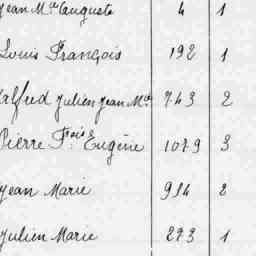 Jean Mie Auguste 4 1
Louis François 192 1
Alfred Julien Jean Mie 743 2
Pierre Fçois Eugène 1079 3
Jean Marie 914 2
Julien Marie 273 1